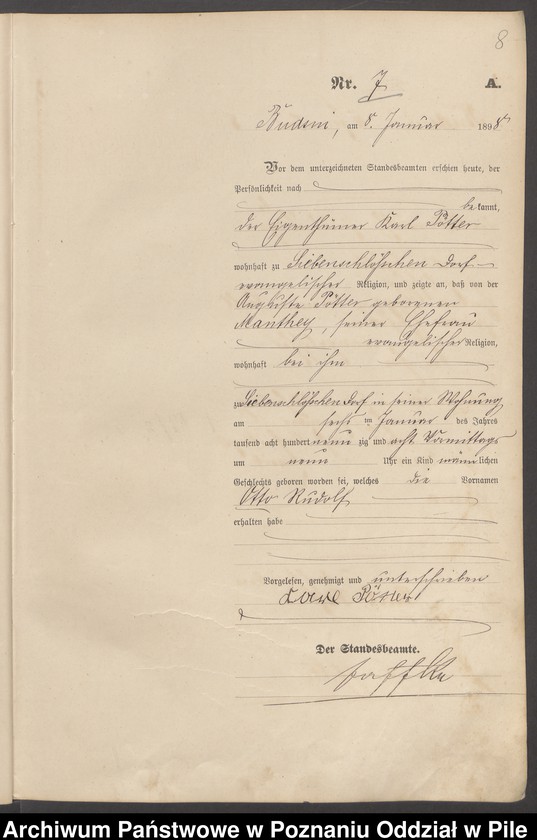 8
Nr. 7 A.
Budsin, am 8. Januar 1898
Vor dem unterzeichneten Standesbeamten erschien heute, der
Persönlichkeit nach
bekannt,
der Eigenthümer Karl Pötter
wohnhaft zu Siebenschlößchen Dorf
evangelischer Religion, und zeigte an, daß von der
Auguste Pötter geborenen
Manthey, seiner Ehefrau
evangelischer Religion,
wohnhaft bei ihm
zu Siebenschlößchen Dorf in seiner Wohnung
am sechs ten Januar des Jahres
tausend acht hundert neun zig und acht Vormittags
um neun Uhr ein Kind männlichen
Geschlechts geboren worden sei, welches die Vornamen
Otto Rudolf
erhalten habe
Vorgelesen, genehmigt und unterschrieben
Carl Pötter
Der Standesbeamte.
Archiwum Państwowe w Poznaniu Oddział w Pile